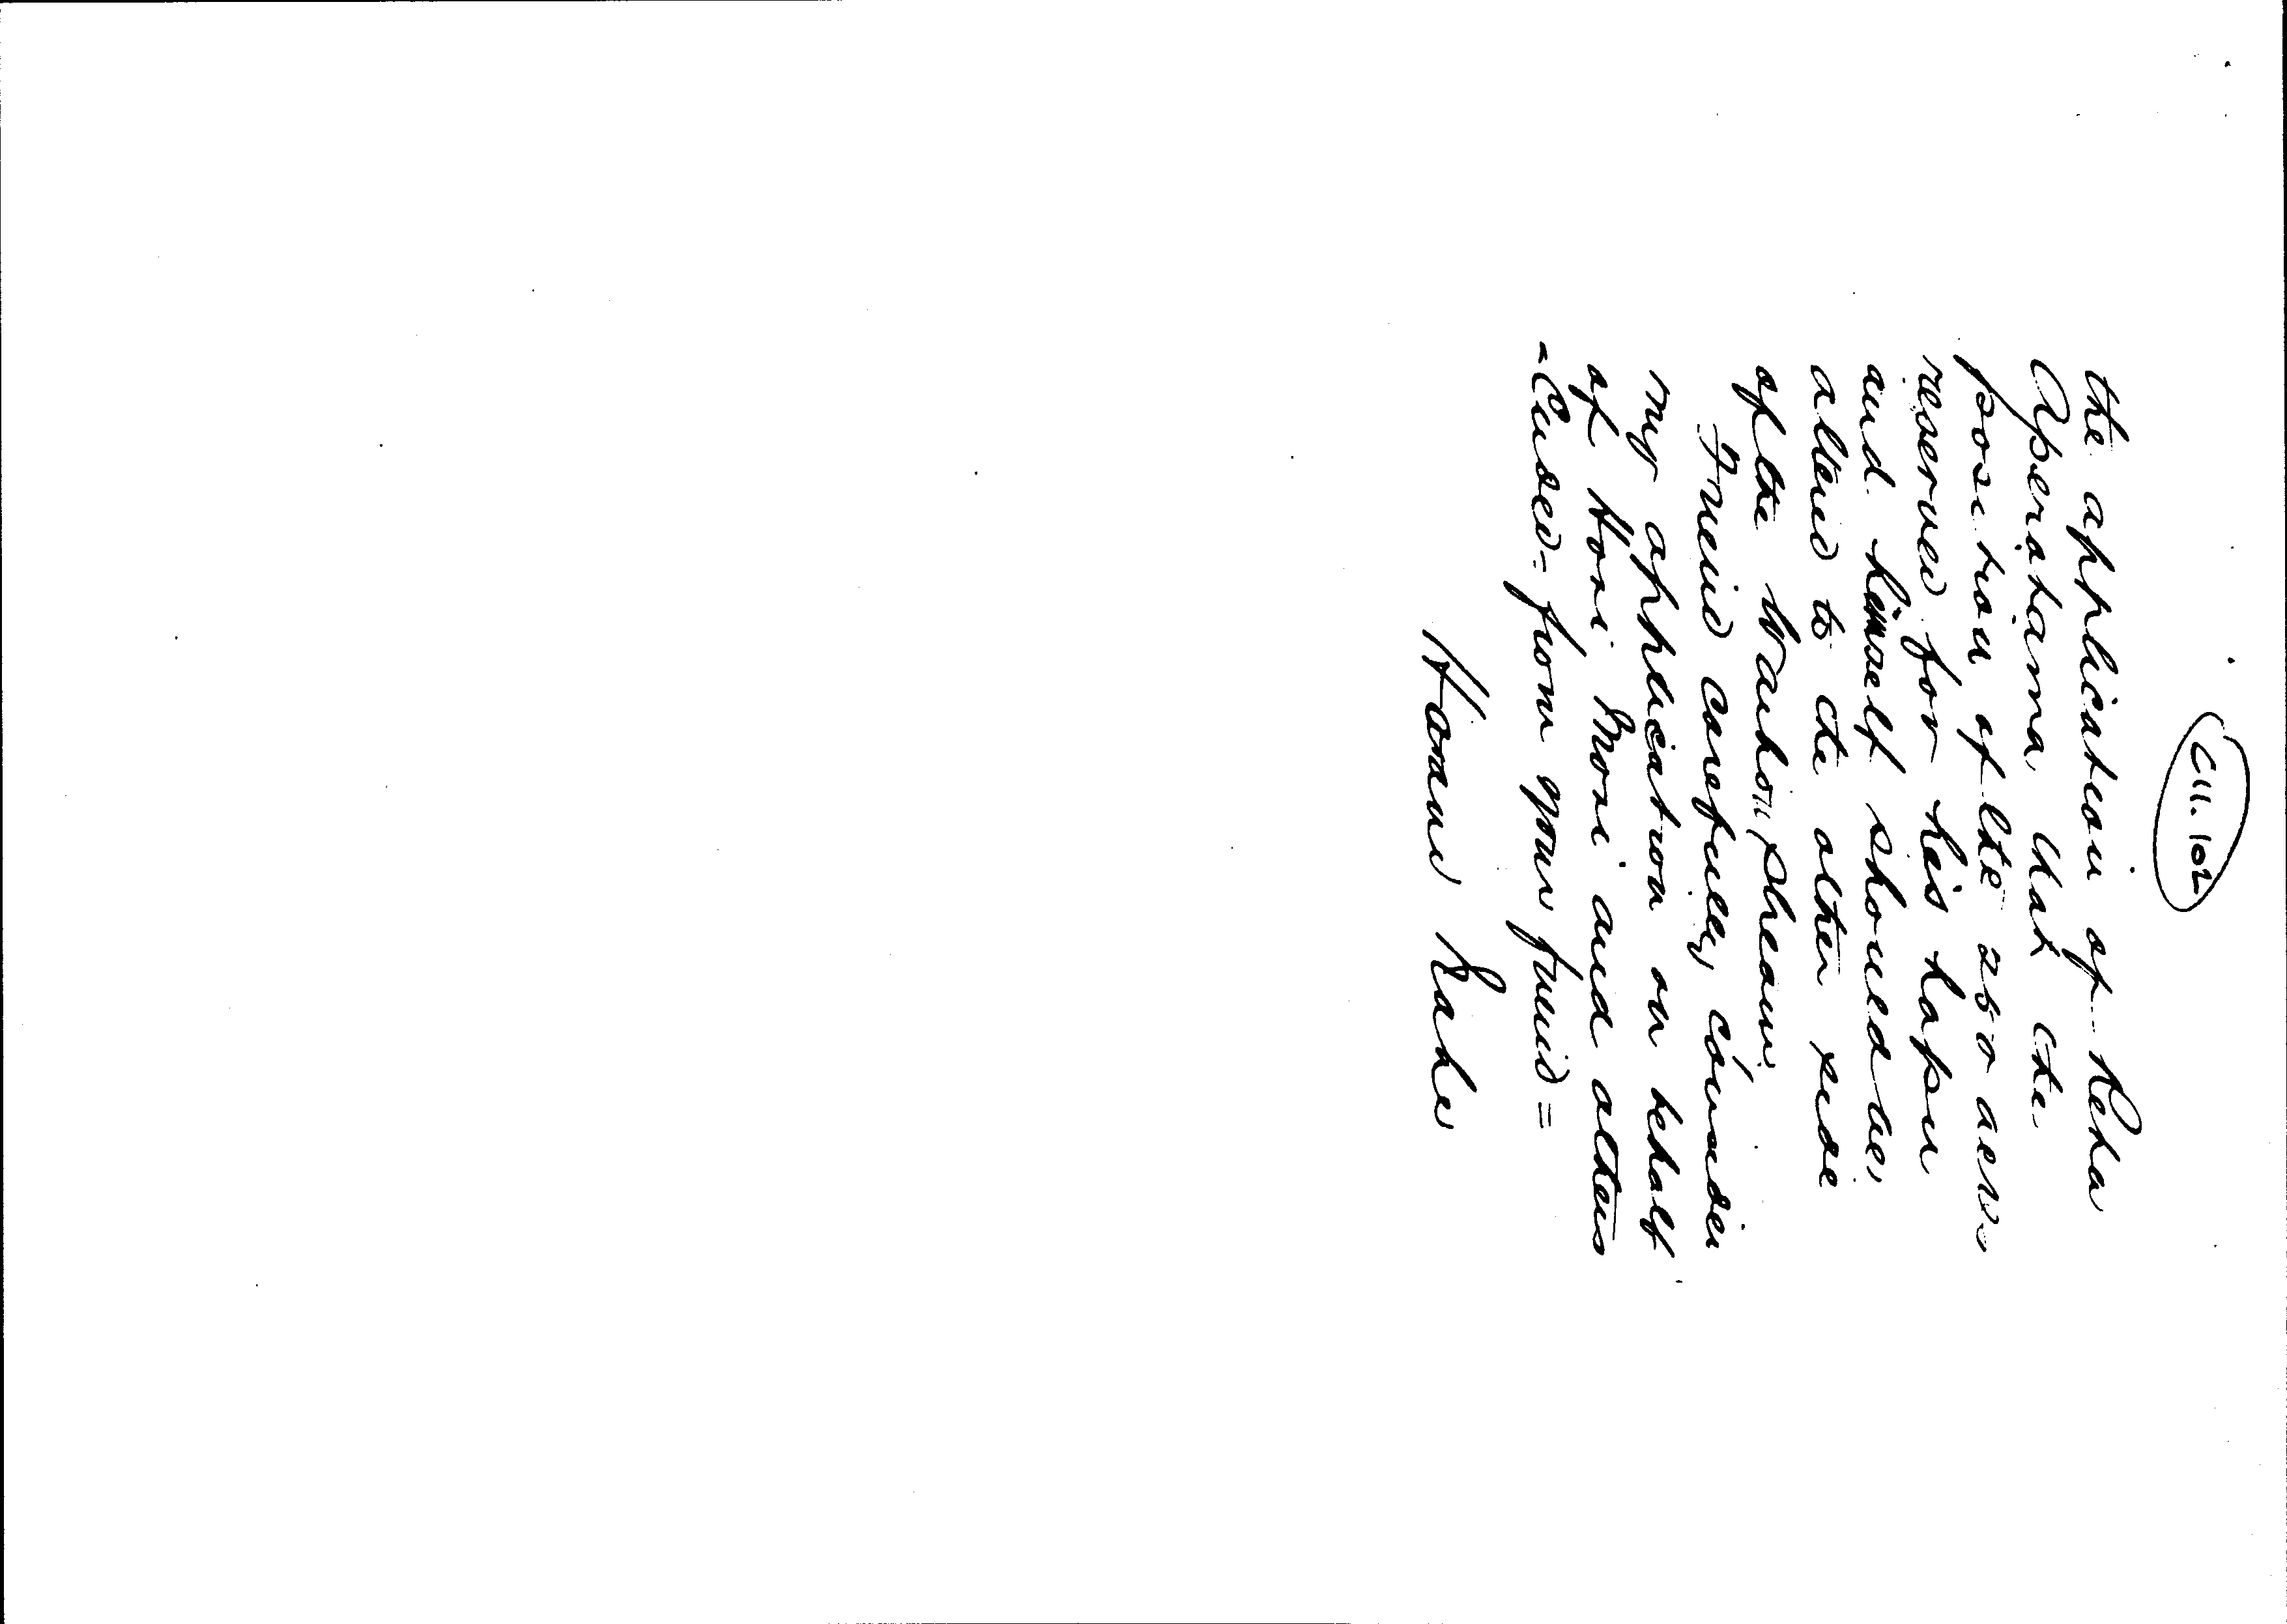 C11.102
the application of Reha
Aperahama, that the
position of the 250 acres
reserved for his hapu
and himself should be
altered to the other side
of the Waihou stream.
Friend carefully consider
my application on behalf
of Hori Mori and others
- Ended = from your friend =
Hoani